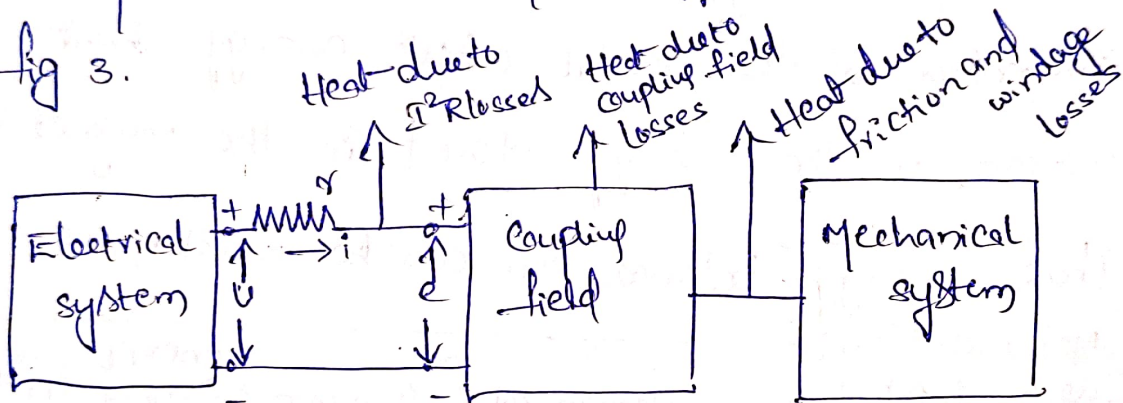 fig 3.
Heat due to
I²R losses
Heat due to
coupling field
losses
Heat due to
friction and
windage
losses
Electrical
system
+
r
→ i
+
υ
e
-
-
Coupling
field
Mechanical
system